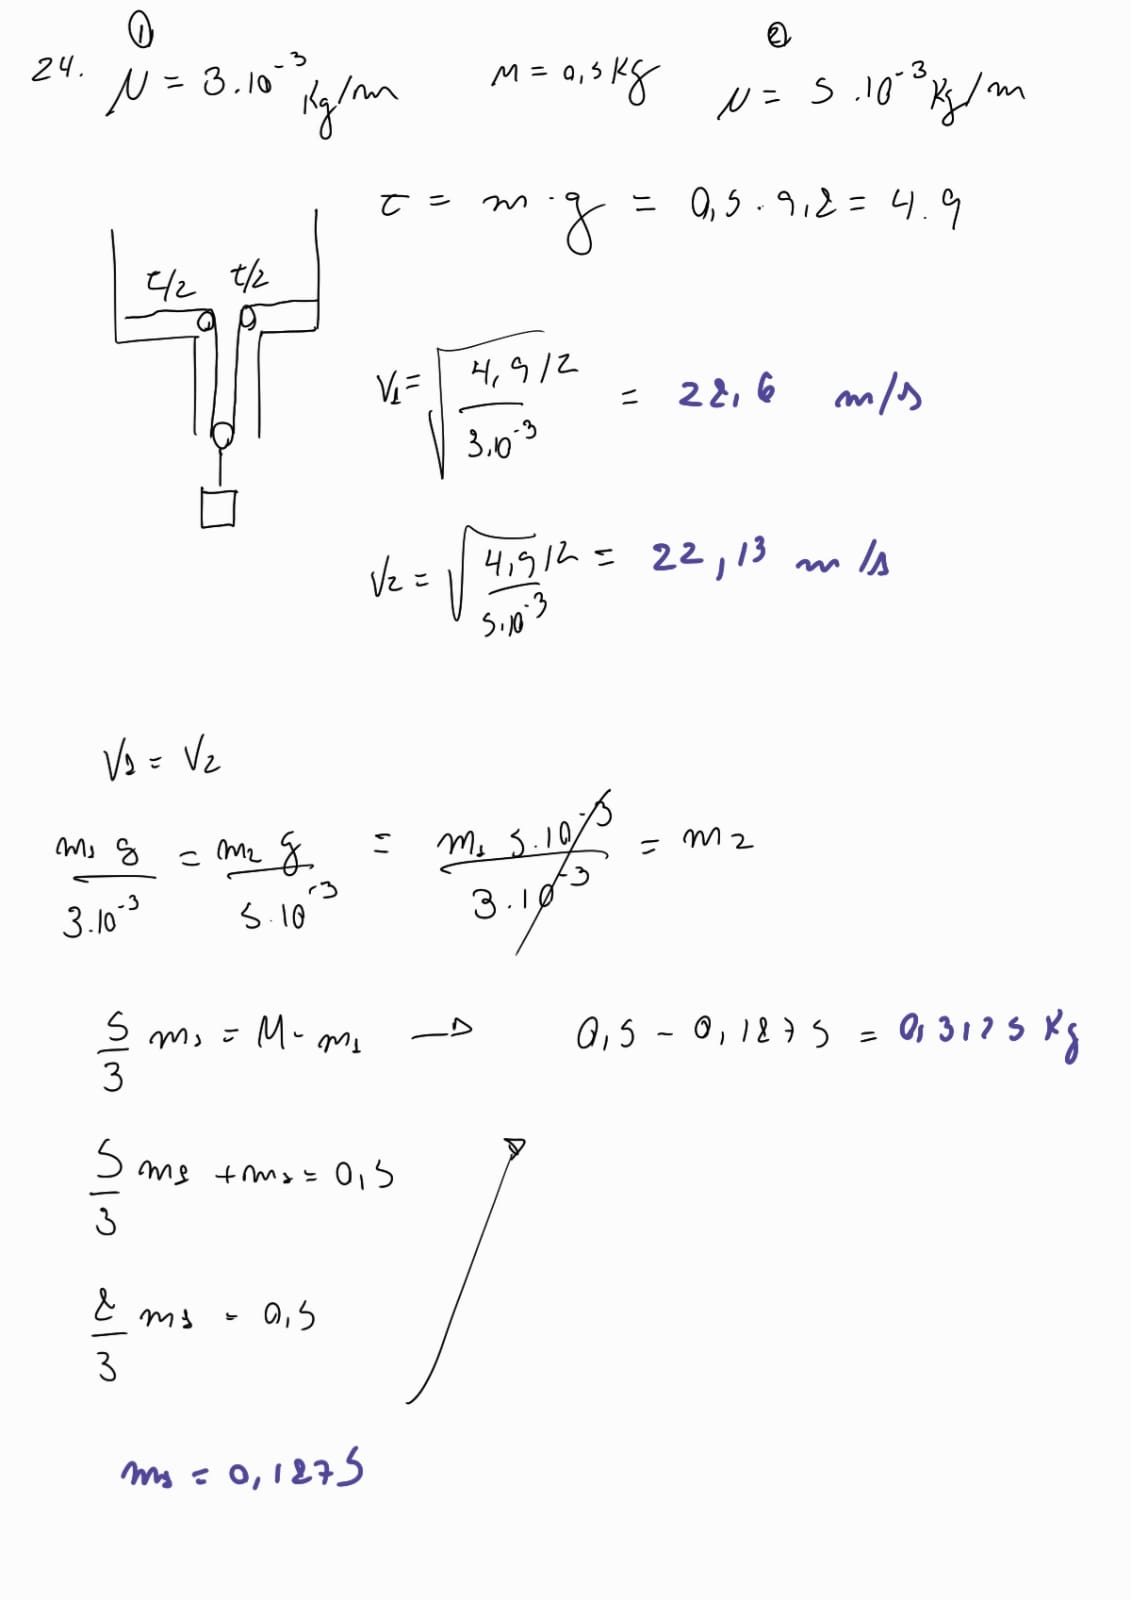 ① ②
24. μ = 3.10⁻³ Kg/m M = 0,5 Kg μ = 5.10⁻³ Kg/m
τ = m · g = 0,5 . 9,8 = 4.9
τ/2 τ/2
V₁ = √((4,9/2)/(3.10⁻³)) = 28,6 m/s
V₂ = √((4,9/2)/(5.10⁻³)) = 22,13 m/s
V₁ = V₂
(m₁ g)/(3.10⁻³) = (m₂ g)/(5.10⁻³) = (m₁ 5.10⁻³)/(3.10⁻³) = m₂
5/3 m₁ = M - m₁ → 0,5 - 0,1875 = 0,3125 Kg
5/3 m₁ + m₁ = 0,5
8/3 m₁ = 0,5
m₁ = 0,1875